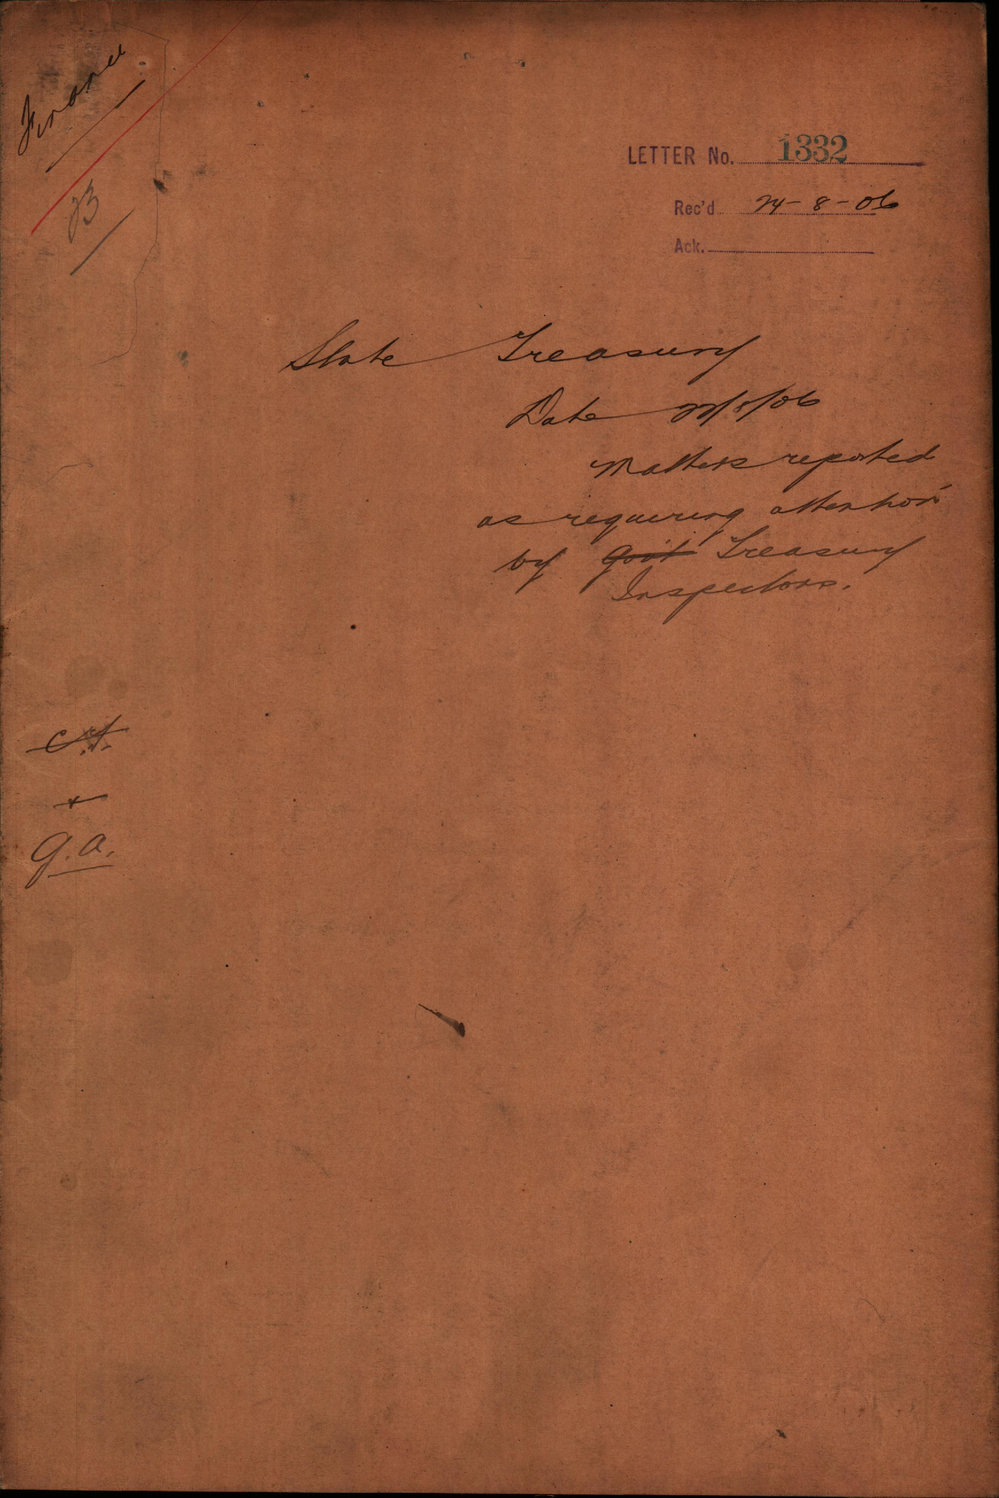 Finance
23
LETTER No. 1332
Rec'd 24-8-06
Ack.
State Treasury
Date 22/8/06
Matters reported
as requiring attention
by Govt Treasury
Inspectors.
G.A.